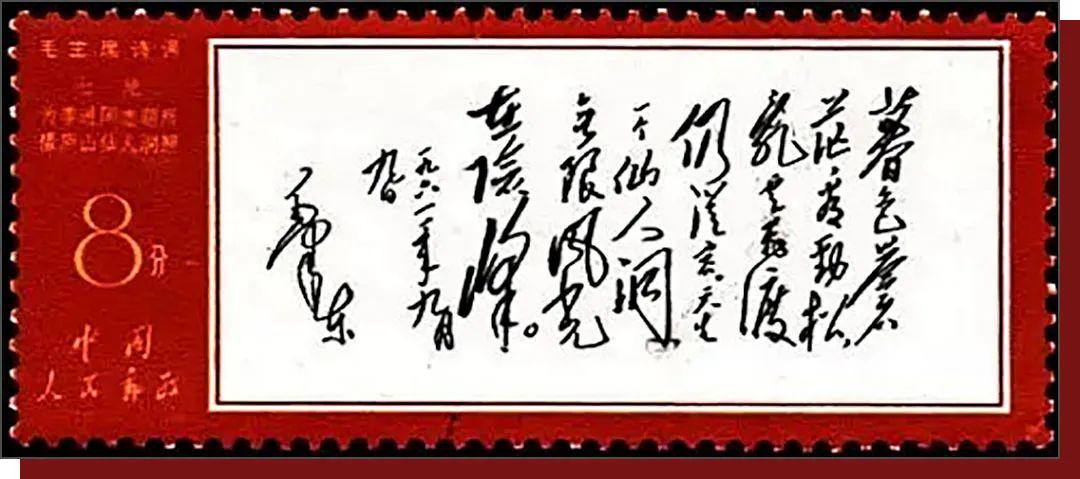 毛主席诗词
七绝
为李进同志题所
摄庐山仙人洞照
8分
中国
人民邮政
暮色苍
茫看劲松
乱云飞渡
仍从容天生
一个仙人洞
无限风光
在险峰。
一九六一年九月
九日
毛泽东